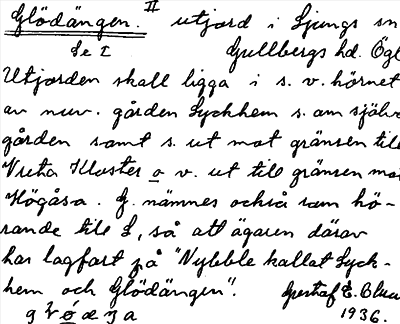 Glödängen. II utjord i Ljungs sn
Se I Gullbergs hd. Ögl
Utjorden skall ligga i s. v. hörnet
av nuv. gården Lyckhem s. om själv
gården samt s. ut mot gränsen till
Vreta Kloster o v. ut till gränsen mot
Högåsa. G. nämnes också som hö-
rande till L, så att ägaren därav
har lagfart på "Nybble kallat Lyck-
hem och Glödängen". Gustaf E.
1936.